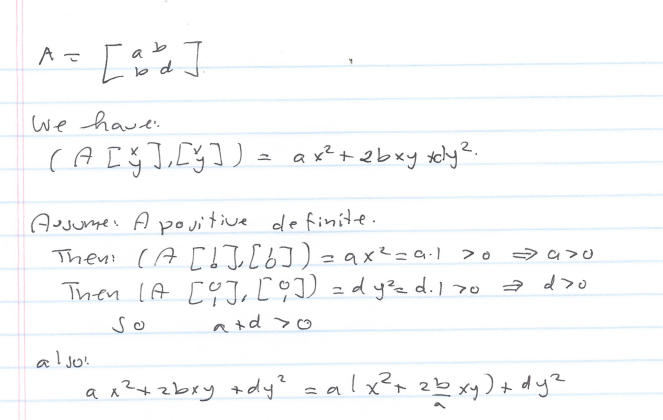 A = [ a b
b d ]
We have:
( A [x y], [x y] ) = ax² + 2bxy + dy².
Assume: A positive definite.
Then: ( A [1 0], [1 0] ) = ax² = a·1 > 0 ⇒ a>0
Then ( A [0 1], [0 1] ) = dy² = d·1 > 0 ⇒ d>0
So a+d > 0
also:
ax² + 2bxy + dy² = a( x² + 2b/a xy) + dy²